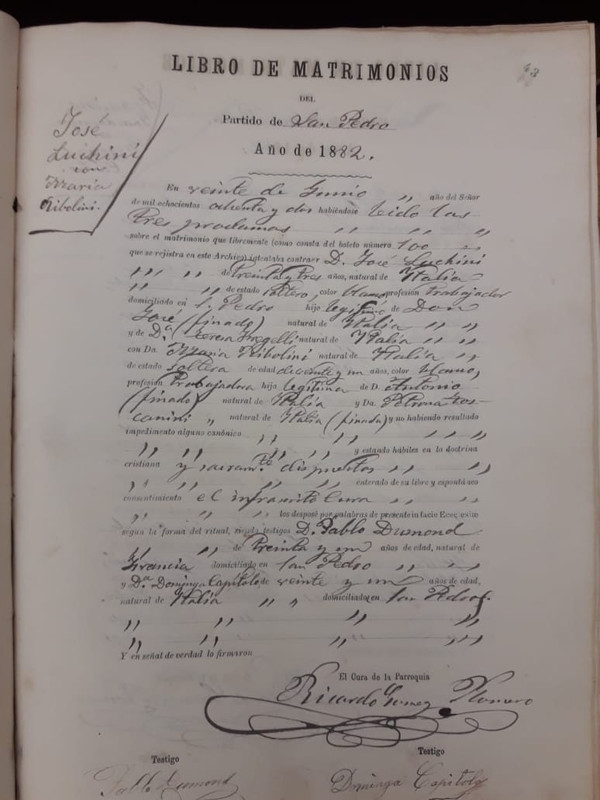 LIBRO DE MATRIMONIOS
DEL
Partido de San Pedro
Año de 1882.
José
Luchini
con
Maria
Ribolini.
En veinte de Junio " año del Señor
de mil ochocientos ochenta y dos habiéndose leido las
tres proclamas " " "
sobre el matrimonio que libremente (como consta del boleto número 100 "
que se registra en este Archivo) intentaba contraer D. José Luchini
" " " de treinta y tres años, natural de Italia
" " de estado soltero, color blanco profesión trabajador
domiciliado en S. Pedro hijo legítimo de Don
José (finado) natural de Italia " "
y de Da. Teresa natural de Italia " "
con Da. Maria Ribolini natural de Italia " "
de estado soltera de edad de veinte y un años, color blanco,
profesión Trabajadora hija legitima de D. Antonio
(finado) natural de Italia y Da. Petrona Tos-
canini " natural de Italia (finada) y no habiendo resultado
impedimento alguno canónico " " " " "
" " " " y estando hábiles en la doctrina
cristiana y sacramte. dispuestos " " "
" " " " enterado de su libre y espontáneo
consentimiento el infrascrito Cura " "
" " " los desposé por palabras de presente in facie Ecce;
según la forma del ritual, siendo testigos D. Pablo Dumond
" " de Treinta y un años de edad, natural de
Francia domiciliado en San Pedro " "
y Da. Dominga Capitolo de veinte y un años de edad,
natural de Italia " " domiciliada en San Pedro
" " " " "
" " " " "
Y en señal de verdad lo firmaron
El Cura de la Parroquia
Ricardo Gomez Romero
Testigo
Testigo
Pablo Dumond
Dominga Capitolo